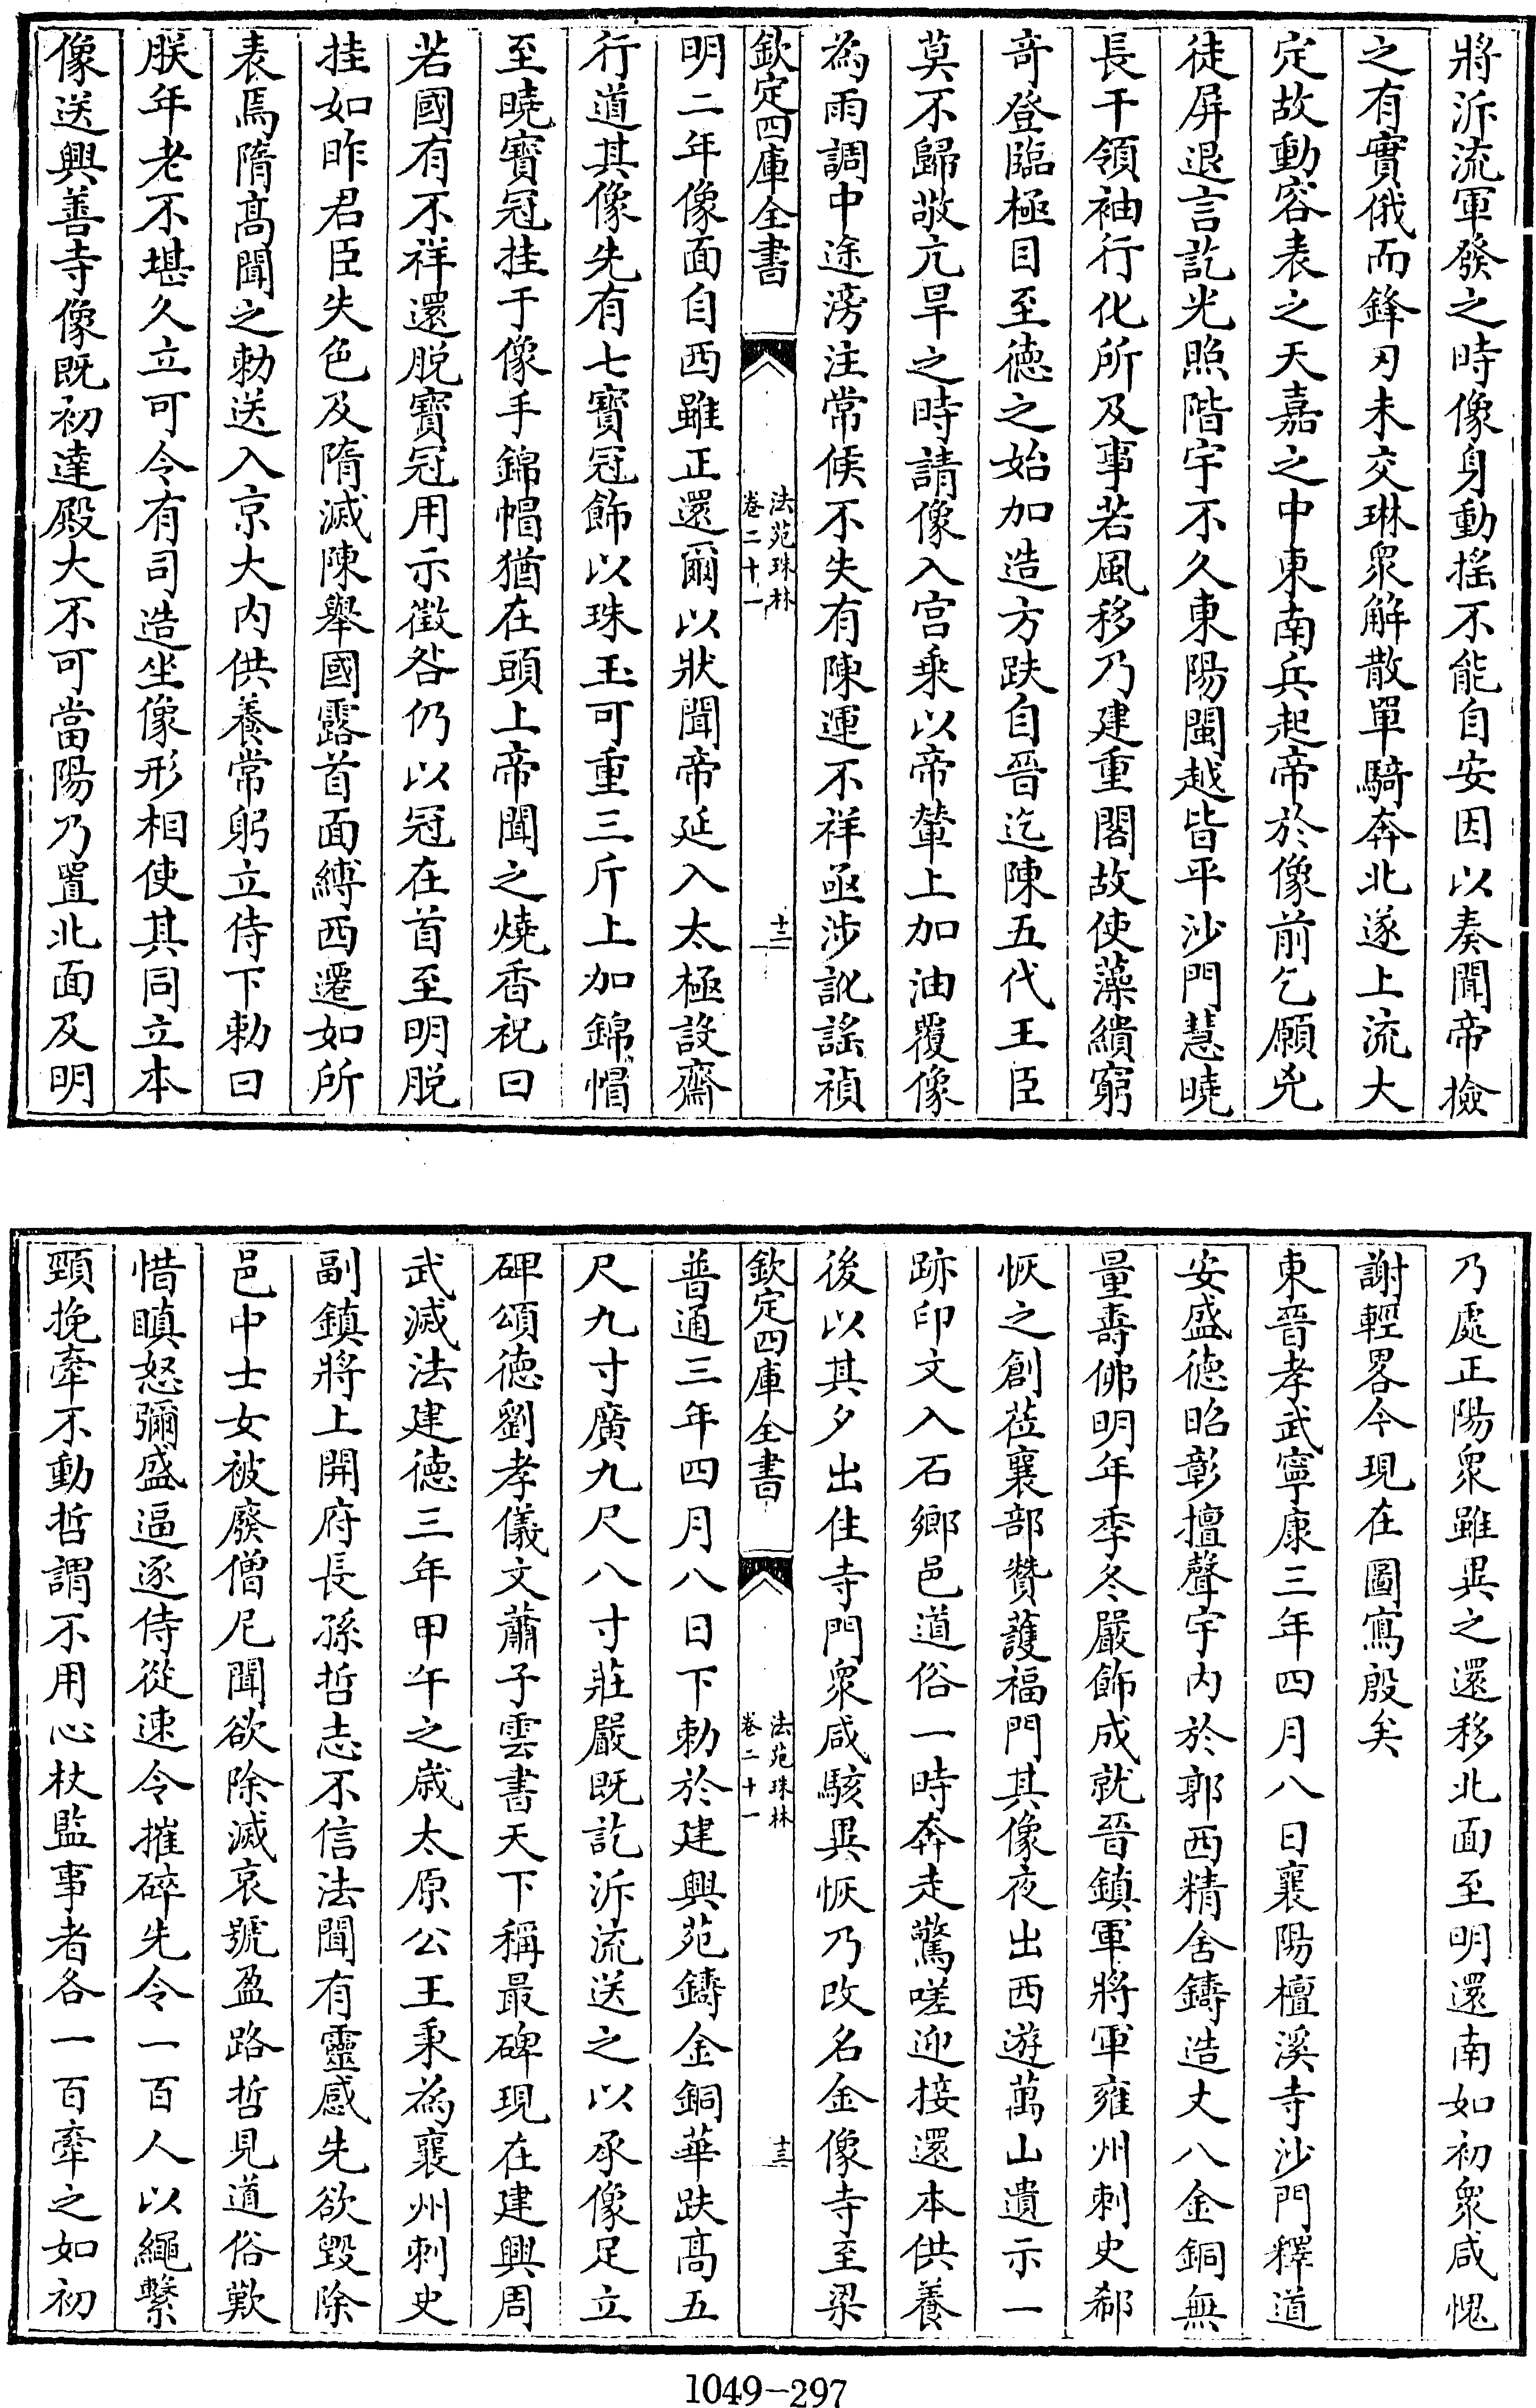 將泝流軍發之時像身動搖不能自安因以奏聞帝撿
之有實俄而鋒刃未交琳衆解散單騎奔北遂上流大
定故動容表之天嘉之中東南兵起帝於像前乞願兇
徒屏退言訖光照階宇不久東陽閩越皆平沙門慧曉
長干領袖行化所及事若風移乃建重閣故使藻繢窮
奇登臨極目至德之始加造方趺自晉迄陳五代王臣
莫不歸敬亢旱之時請像入宫乗以帝輦上加油覆像
為雨調中途滂注常候不失有陳運不祥亟涉訛謠禎
欽定四庫全書
法苑珠林
卷二十一
十二
明二年像面自西雖正還爾以狀聞帝延入太極設齋
行道其像先有七寶冠飾以珠玉可重三斤上加錦㡌
至曉寳冠挂于像手錦帽猶在頭上帝聞之燒香祝曰
若國有不祥還脱寳冠用示徵咎仍以冠在首至明脱
挂如昨君臣失色及隋滅陳舉國露首面縛西遷如所
表焉隋髙聞之勅送入京大内供養常躬立侍下勅曰
朕年老不堪久立可令有司造坐像形相使其同立本
像送興善寺像既初達殿大不可當陽乃置北面及明
乃處正陽衆雖異之還移北面至明還南如初衆咸愧
謝輕畧今現在圖寫殷矣
東晉孝武寧康三年四月八日襄陽檀溪寺沙門釋道
安盛德昭彰擅聲宇内於郭西精舍鑄造丈八金銅無
量壽佛明年季冬嚴飾成就晉鎮軍將軍雍州刺史郗
恢之創蒞襄部贊護福門其像夜出西遊萬山遺示一
跡印文入石鄉邑道俗一時奔走驚嗟迎接還本供養
後以其夕出住寺門衆咸駭異恢乃改名金像寺至梁
欽定四庫全書
法苑珠林
卷二十一
十三
普通三年四月八日下勅於建興苑鑄金銅華趺髙五
尺九寸廣九尺八寸莊嚴既訖泝流送之以承像足立
碑頌德劉孝儀文蕭子雲書天下稱最碑現在建興周
武滅法建德三年甲午之歲太原公王秉為襄州刺史
副鎮將上開府長孫哲志不信法聞有靈感先欲毁除
邑中士女被廢僧尼聞欲除滅哀號盈路哲見道俗歎
惜瞋怒彌盛逼逐侍從速令摧碎先令一百人以繩繫
頸挽牽不動哲謂不用心杖監事者各一百牽之如初
1049-297